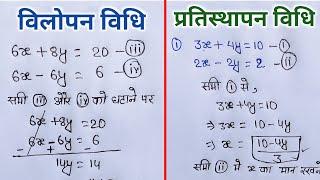 विलोपन विधि
6x + 8y = 20 - (iii)
6x - 6y = 6 - (iv)
समी (iii) और (iv) को घटाने पर
6x + 8y = 20
6x - 6y = 6
- + -
14y = 14
प्रतिस्थापन विधि
(1) 3x + 4y = 10 - (i)
2x - 2y = 2 - (ii)
समी (i) से,
3x + 4y = 10
⇒ 3x = 10 - 4y
⇒ x = 10 - 4y / 3
समी (ii) में x का मान रखने